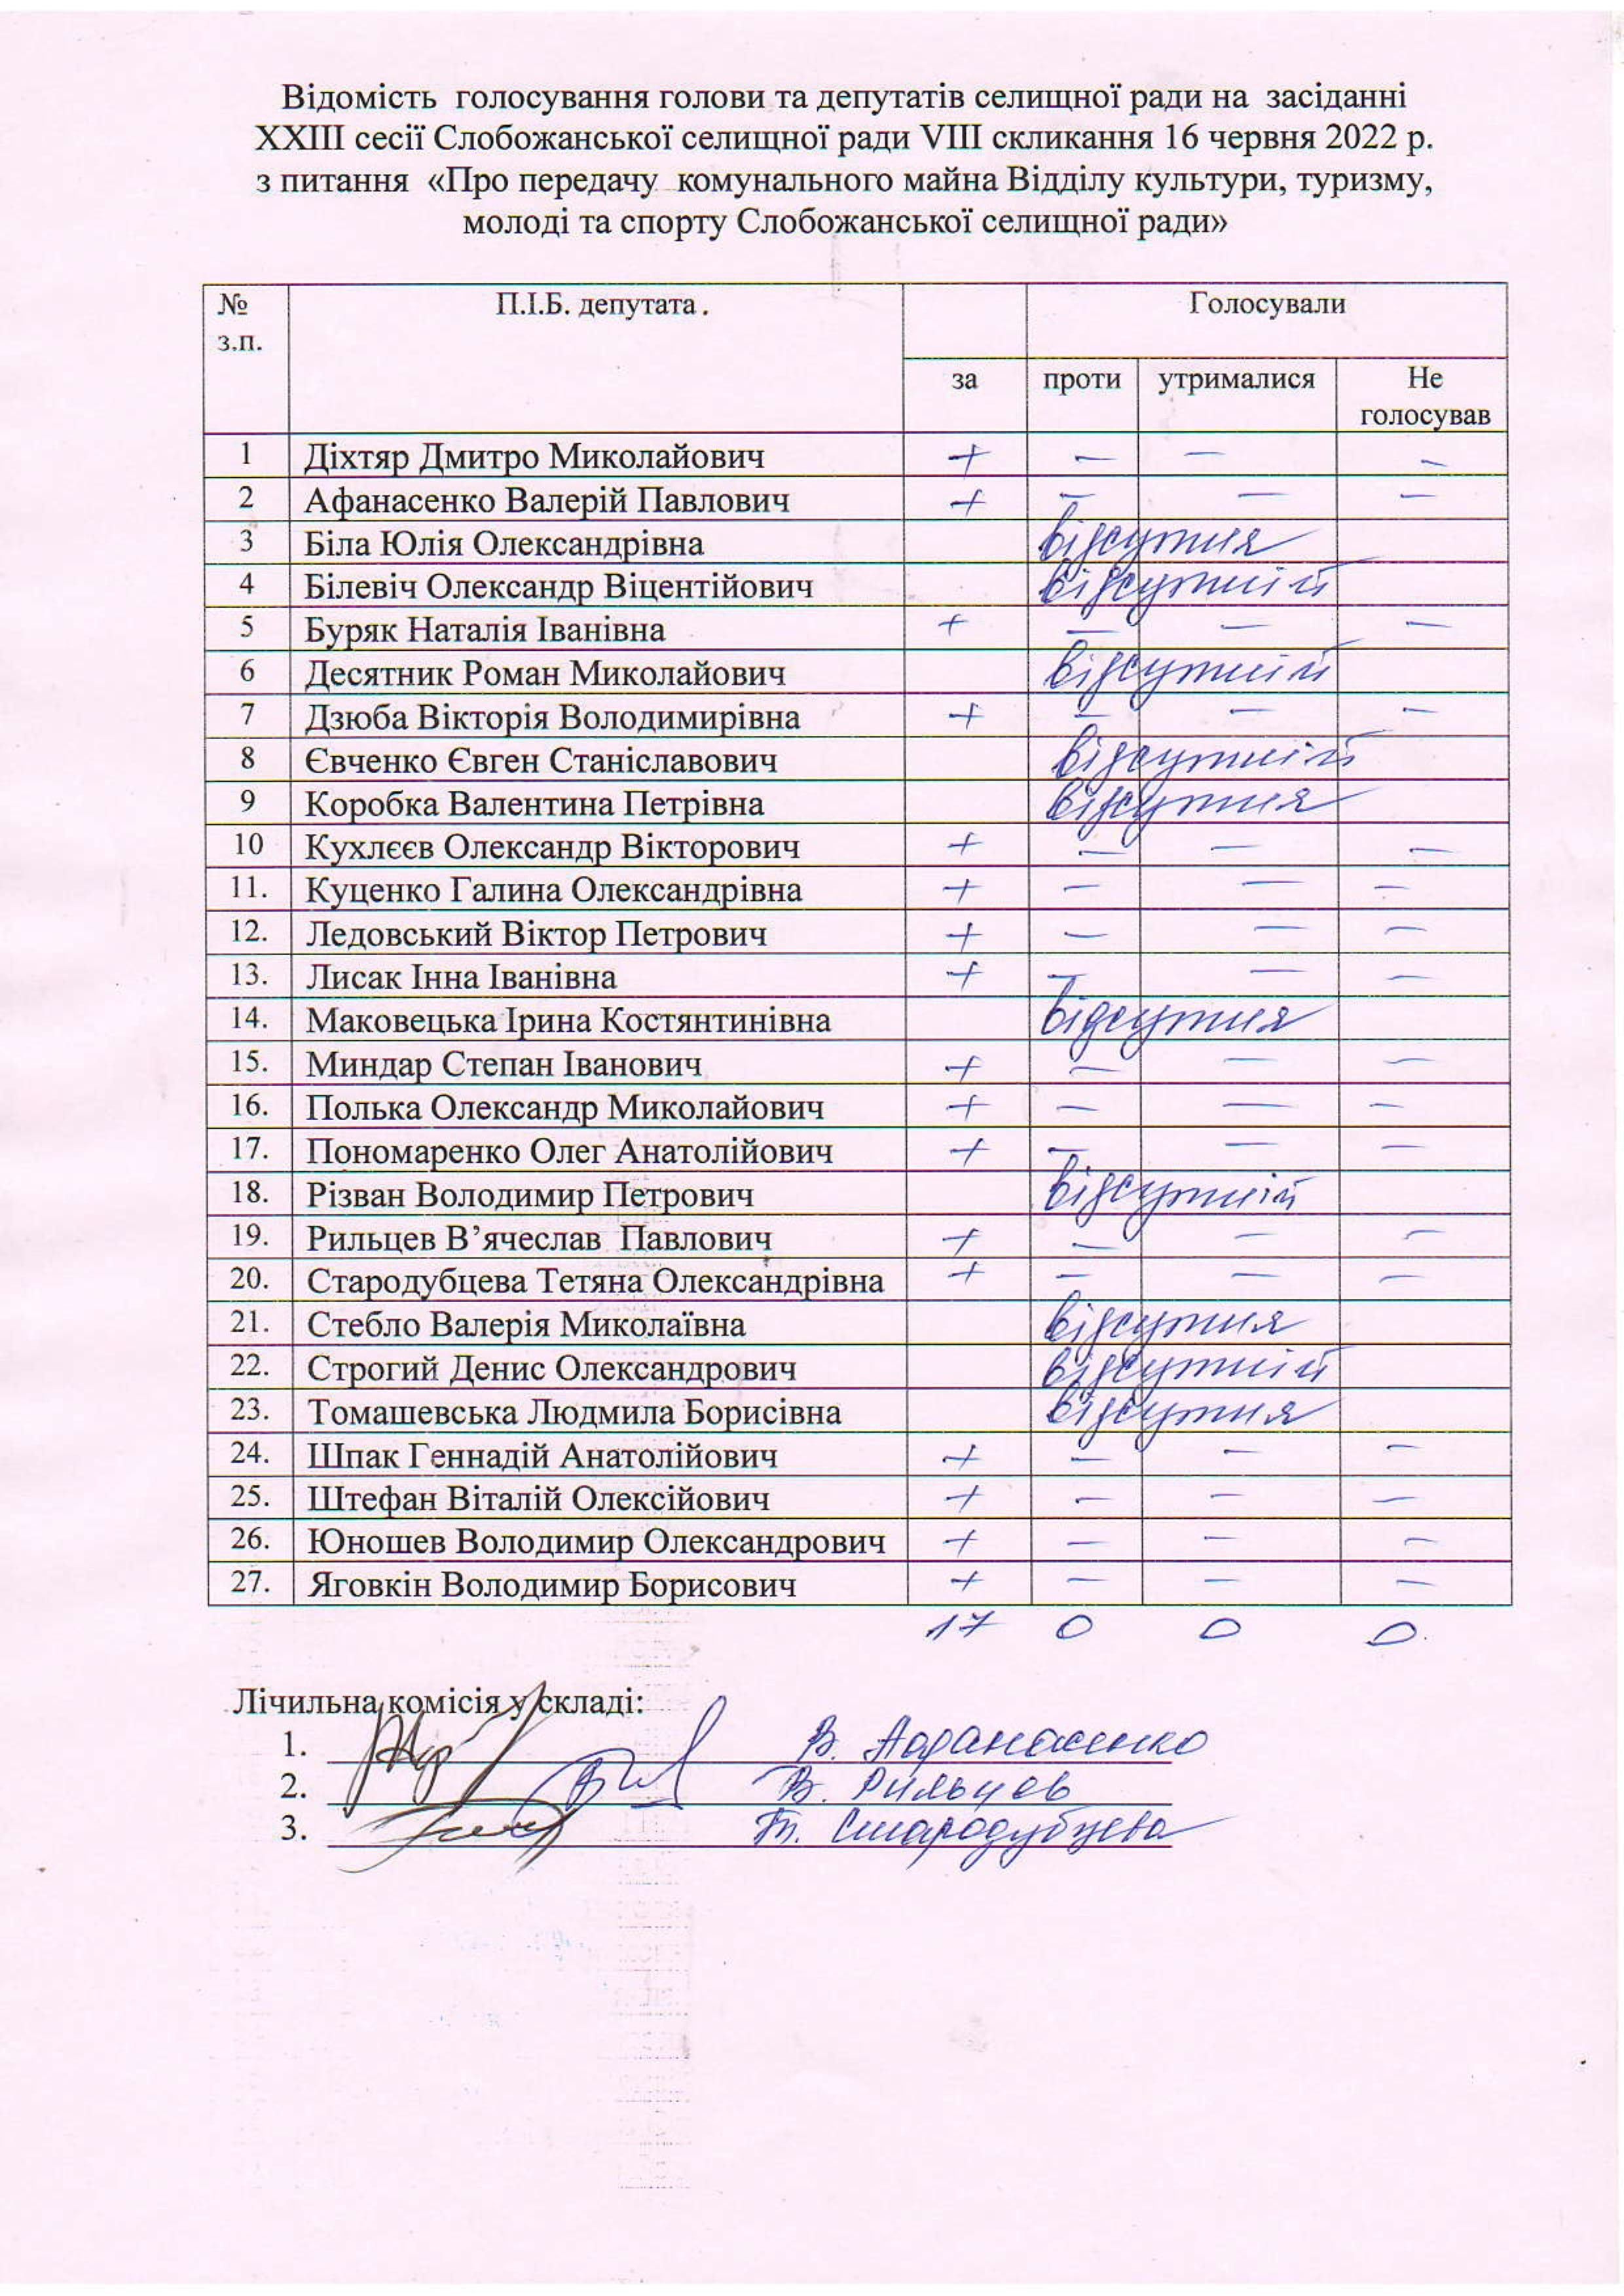 Відомість голосування голови та депутатів селищної ради на засіданні
XXIII сесії Слобожанської селищної ради VIII скликання 16 червня 2022 р.
з питання «Про передачу комунального майна Відділу культури, туризму,
молоді та спорту Слобожанської селищної ради»
№ з.п. П.І.Б. депутата . Голосували
за проти утрималися Не голосував
1 Діхтяр Дмитро Миколайович + – – –
2 Афанасенко Валерій Павлович + – – –
3 Біла Юлія Олександрівна відсутня
4 Білевіч Олександр Віцентійович відсутній
5 Буряк Наталія Іванівна + – – –
6 Десятник Роман Миколайович відсутній
7 Дзюба Вікторія Володимирівна + – – –
8 Євченко Євген Станіславович відсутній
9 Коробка Валентина Петрівна відсутня
10 Кухлєєв Олександр Вікторович + – – –
11. Куценко Галина Олександрівна + – – –
12. Ледовський Віктор Петрович + – – –
13. Лисак Інна Іванівна + – – –
14. Маковецька Ірина Костянтинівна відсутня
15. Миндар Степан Іванович + – – –
16. Полька Олександр Миколайович + – – –
17. Пономаренко Олег Анатолійович + – – –
18. Різван Володимир Петрович відсутній
19. Рильцев В’ячеслав Павлович + – – –
20. Стародубцева Тетяна Олександрівна + – – –
21. Стебло Валерія Миколаївна відсутня
22. Строгий Денис Олександрович відсутній
23. Томашевська Людмила Борисівна відсутня
24. Шпак Геннадій Анатолійович + – – –
25. Штефан Віталій Олексійович + – – –
26. Юношев Володимир Олександрович + – – –
27. Яговкін Володимир Борисович + – – –
17 0 0 0
Лічильна комісія у складі:
1. В. Афанасенко
2. В. Рильцев
3. Т. Стародубцева